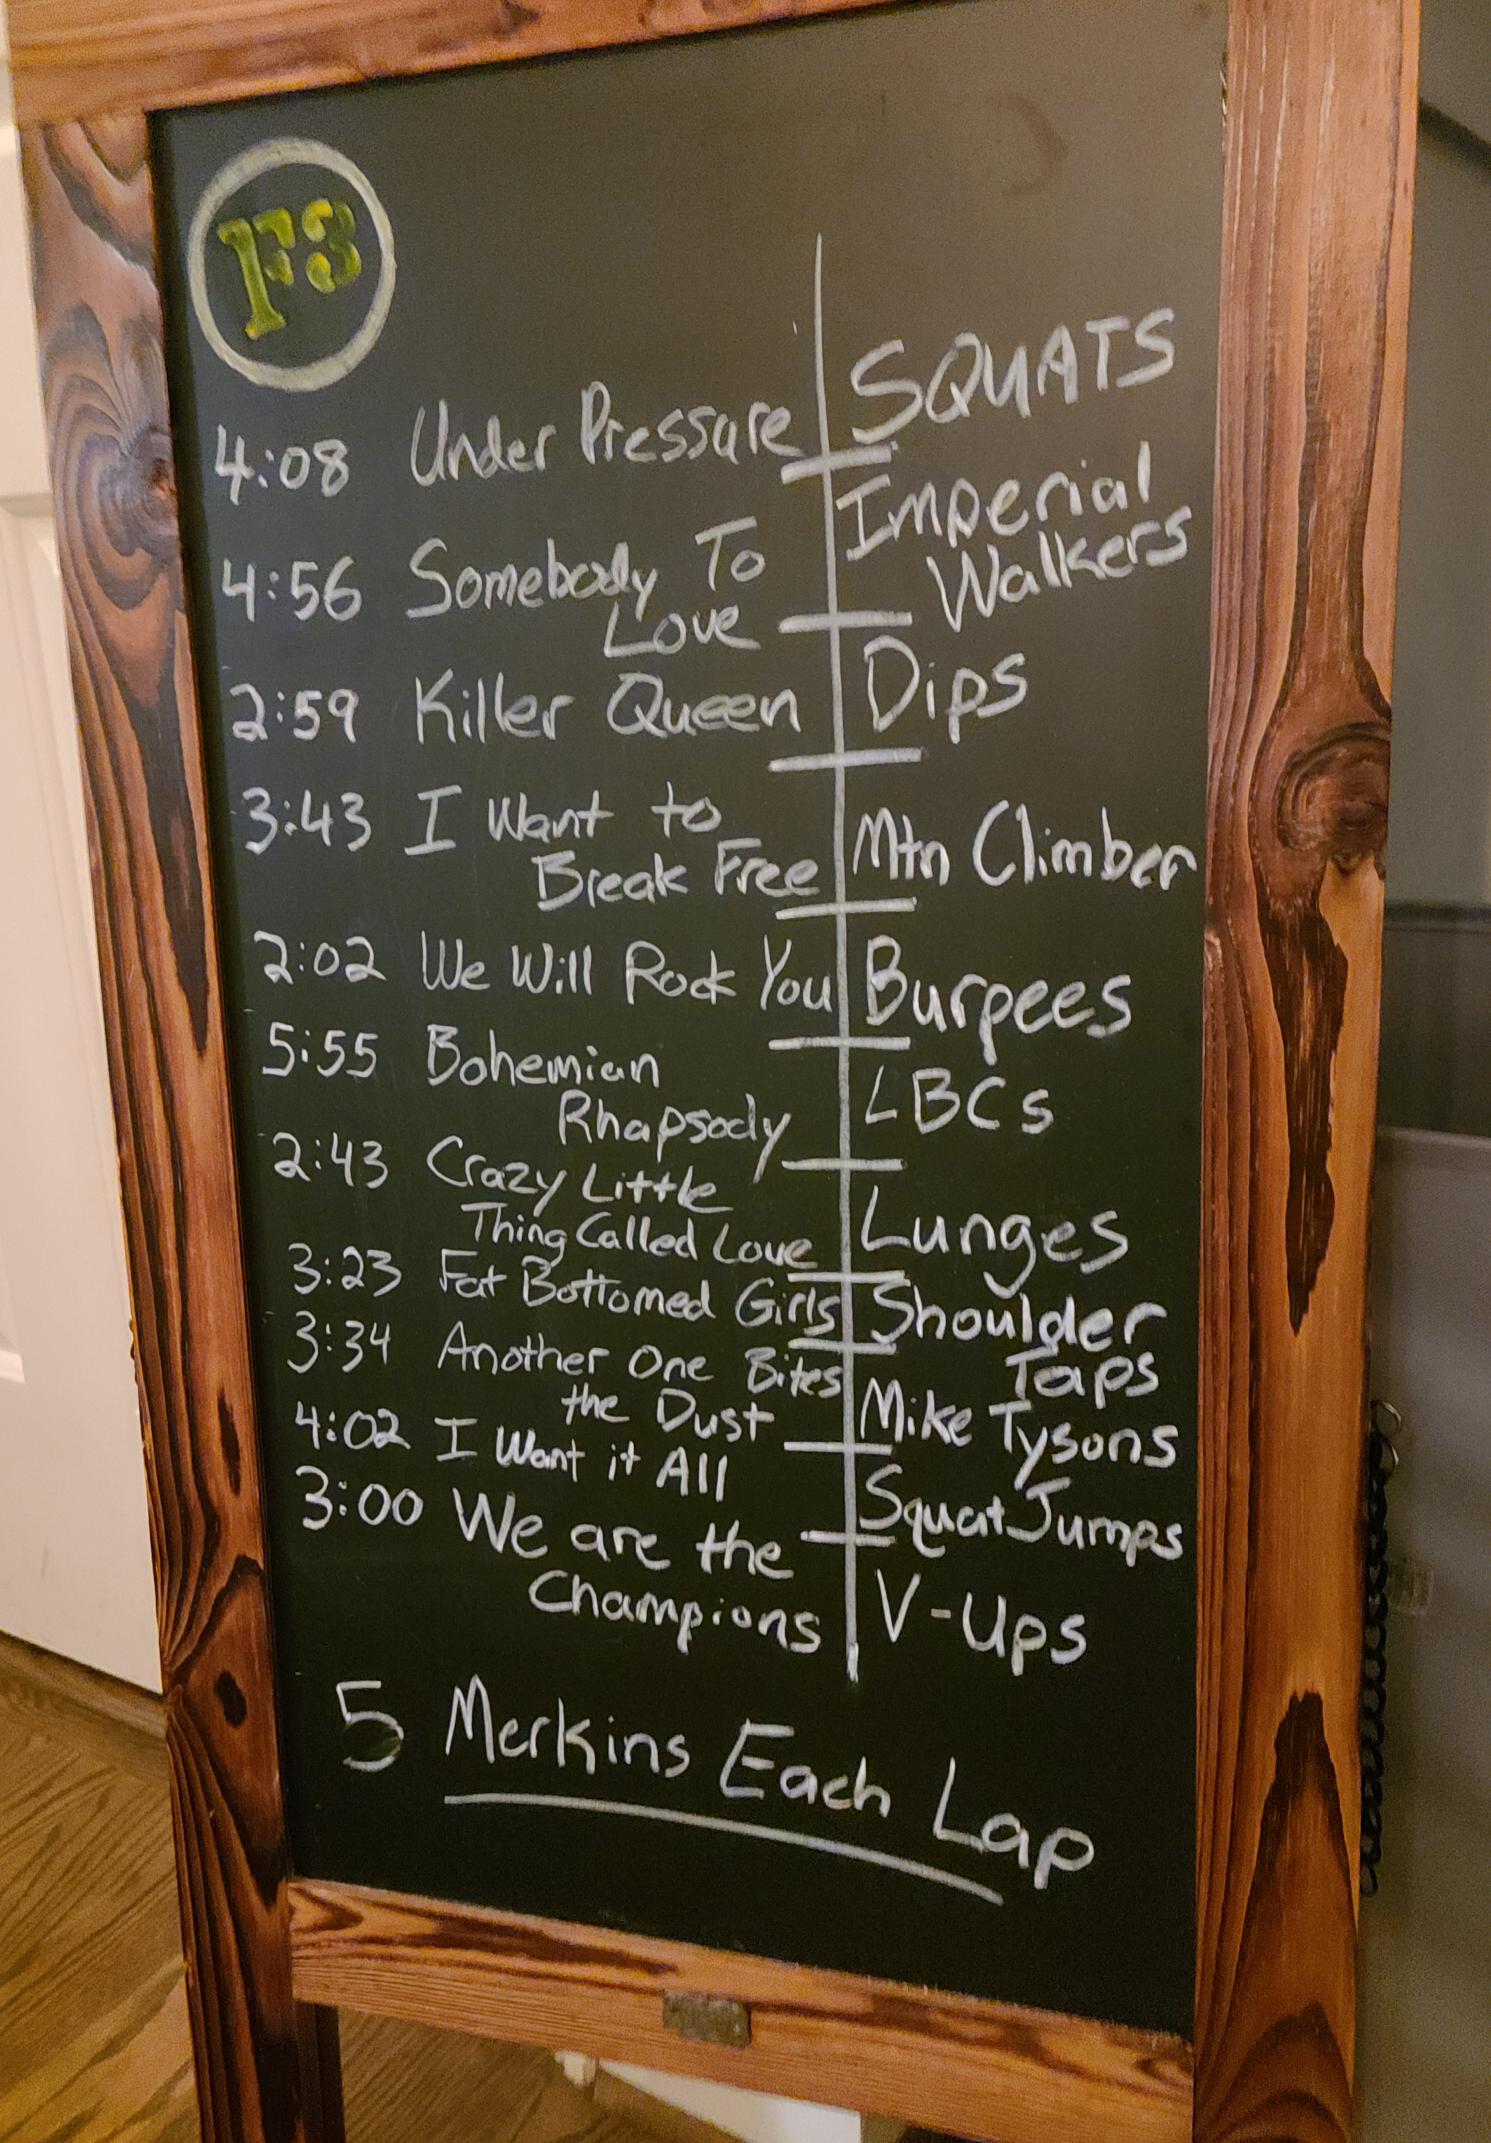 F3
4:08 Under Pressure SQUATS
4:56 Somebody To Imperial
Love Walkers
2:59 Killer Queen Dips
3:43 I Want to
Break Free Mtn Climber
2:02 We Will Rock You Burpees
5:55 Bohemian LBCs
Rhapsody
2:43 Crazy Little
Thing Called Love Lunges
3:23 Fat Bottomed Girls Shoulder
Taps
3:34 Another One Bites Mike Tysons
the Dust
4:02 I Want it All Squat Jumps
3:00 We are the
Champions V-Ups
5 Merkins Each Lap